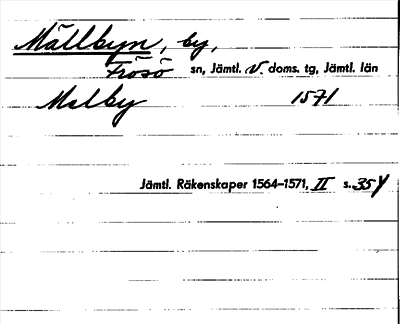 Mällbyn, by,
Frösö sn, Jämtl. V. doms. tg, Jämtl. län
Malby 1571
Jämtl. Räkenskaper 1564–1571, II s. 354